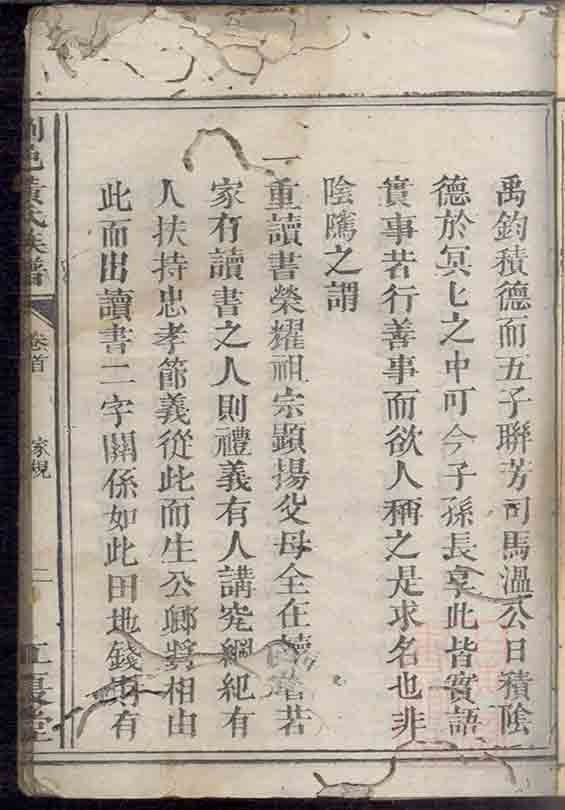 禹鈞積德而五子聯芳司馬溫公曰積陰
德於冥匕之中可令子孫長享此皆實語
實事若行善事而欲人稱之是求名也非
陰隲之謂
一重讀書榮耀祖宗顯揚父母全在讀書若
家有讀書之人則禮義有人講究綱紀有
人扶持忠孝節義從此而生公卿將相由
此而出讀書二字關係如此田地錢財有
邑黃氏族譜
卷首
家規
二
江夏堂